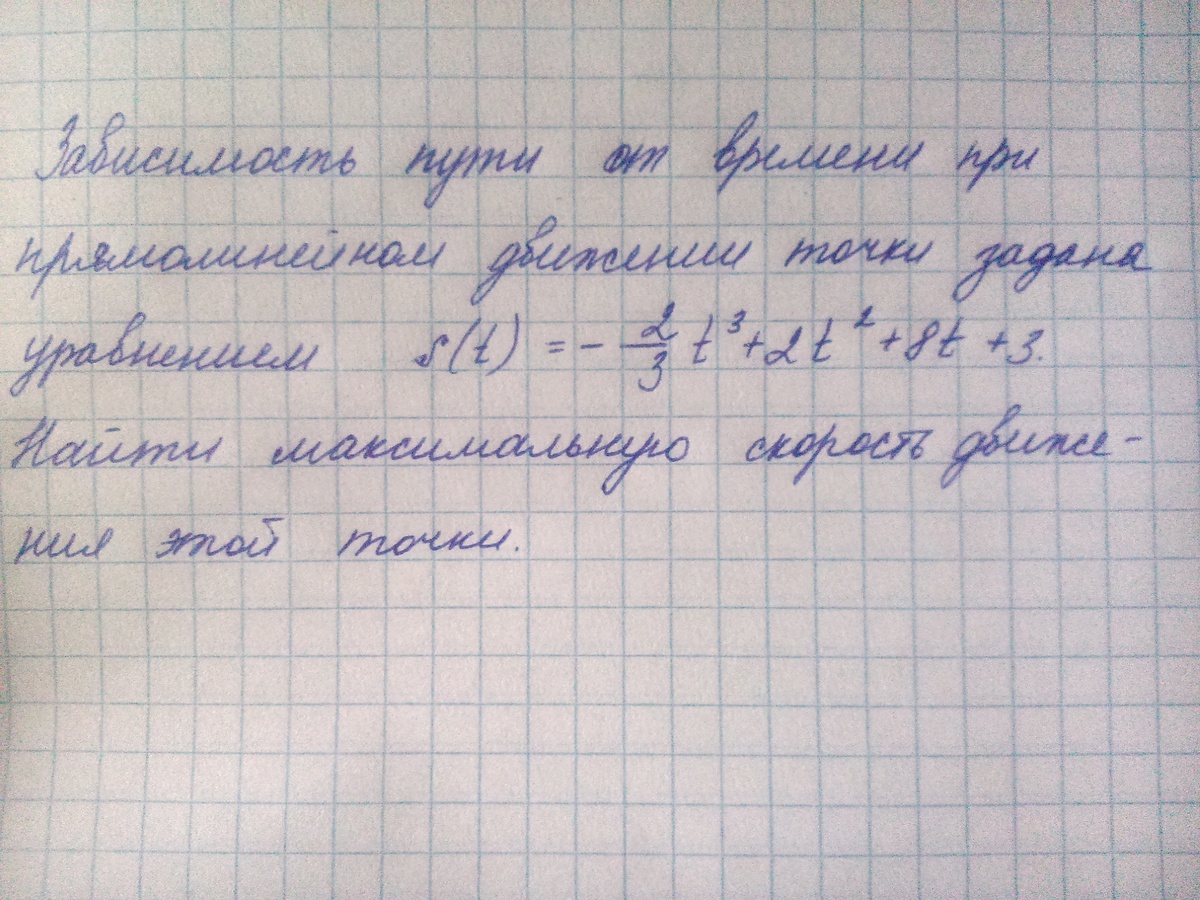 Зависимость пути от времени при
прямолинейном движении точки задана
уравнением s(t) = - 2/3 t³ + 2t² + 8t + 3.
Найти максимальную скорость движе-
ния этой точки.